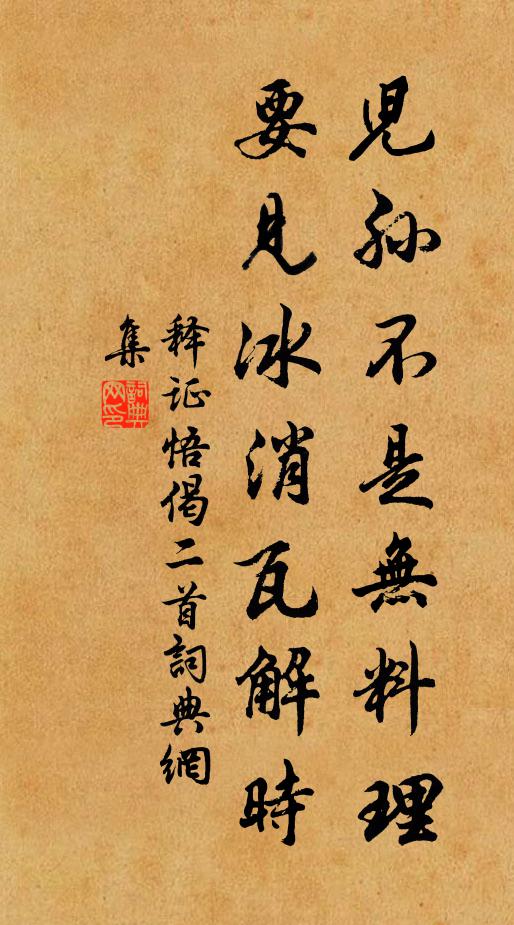 兒孫不是無料理
要見冰消瓦解時
释证悟偈二首詞典網
集
詞典
网印